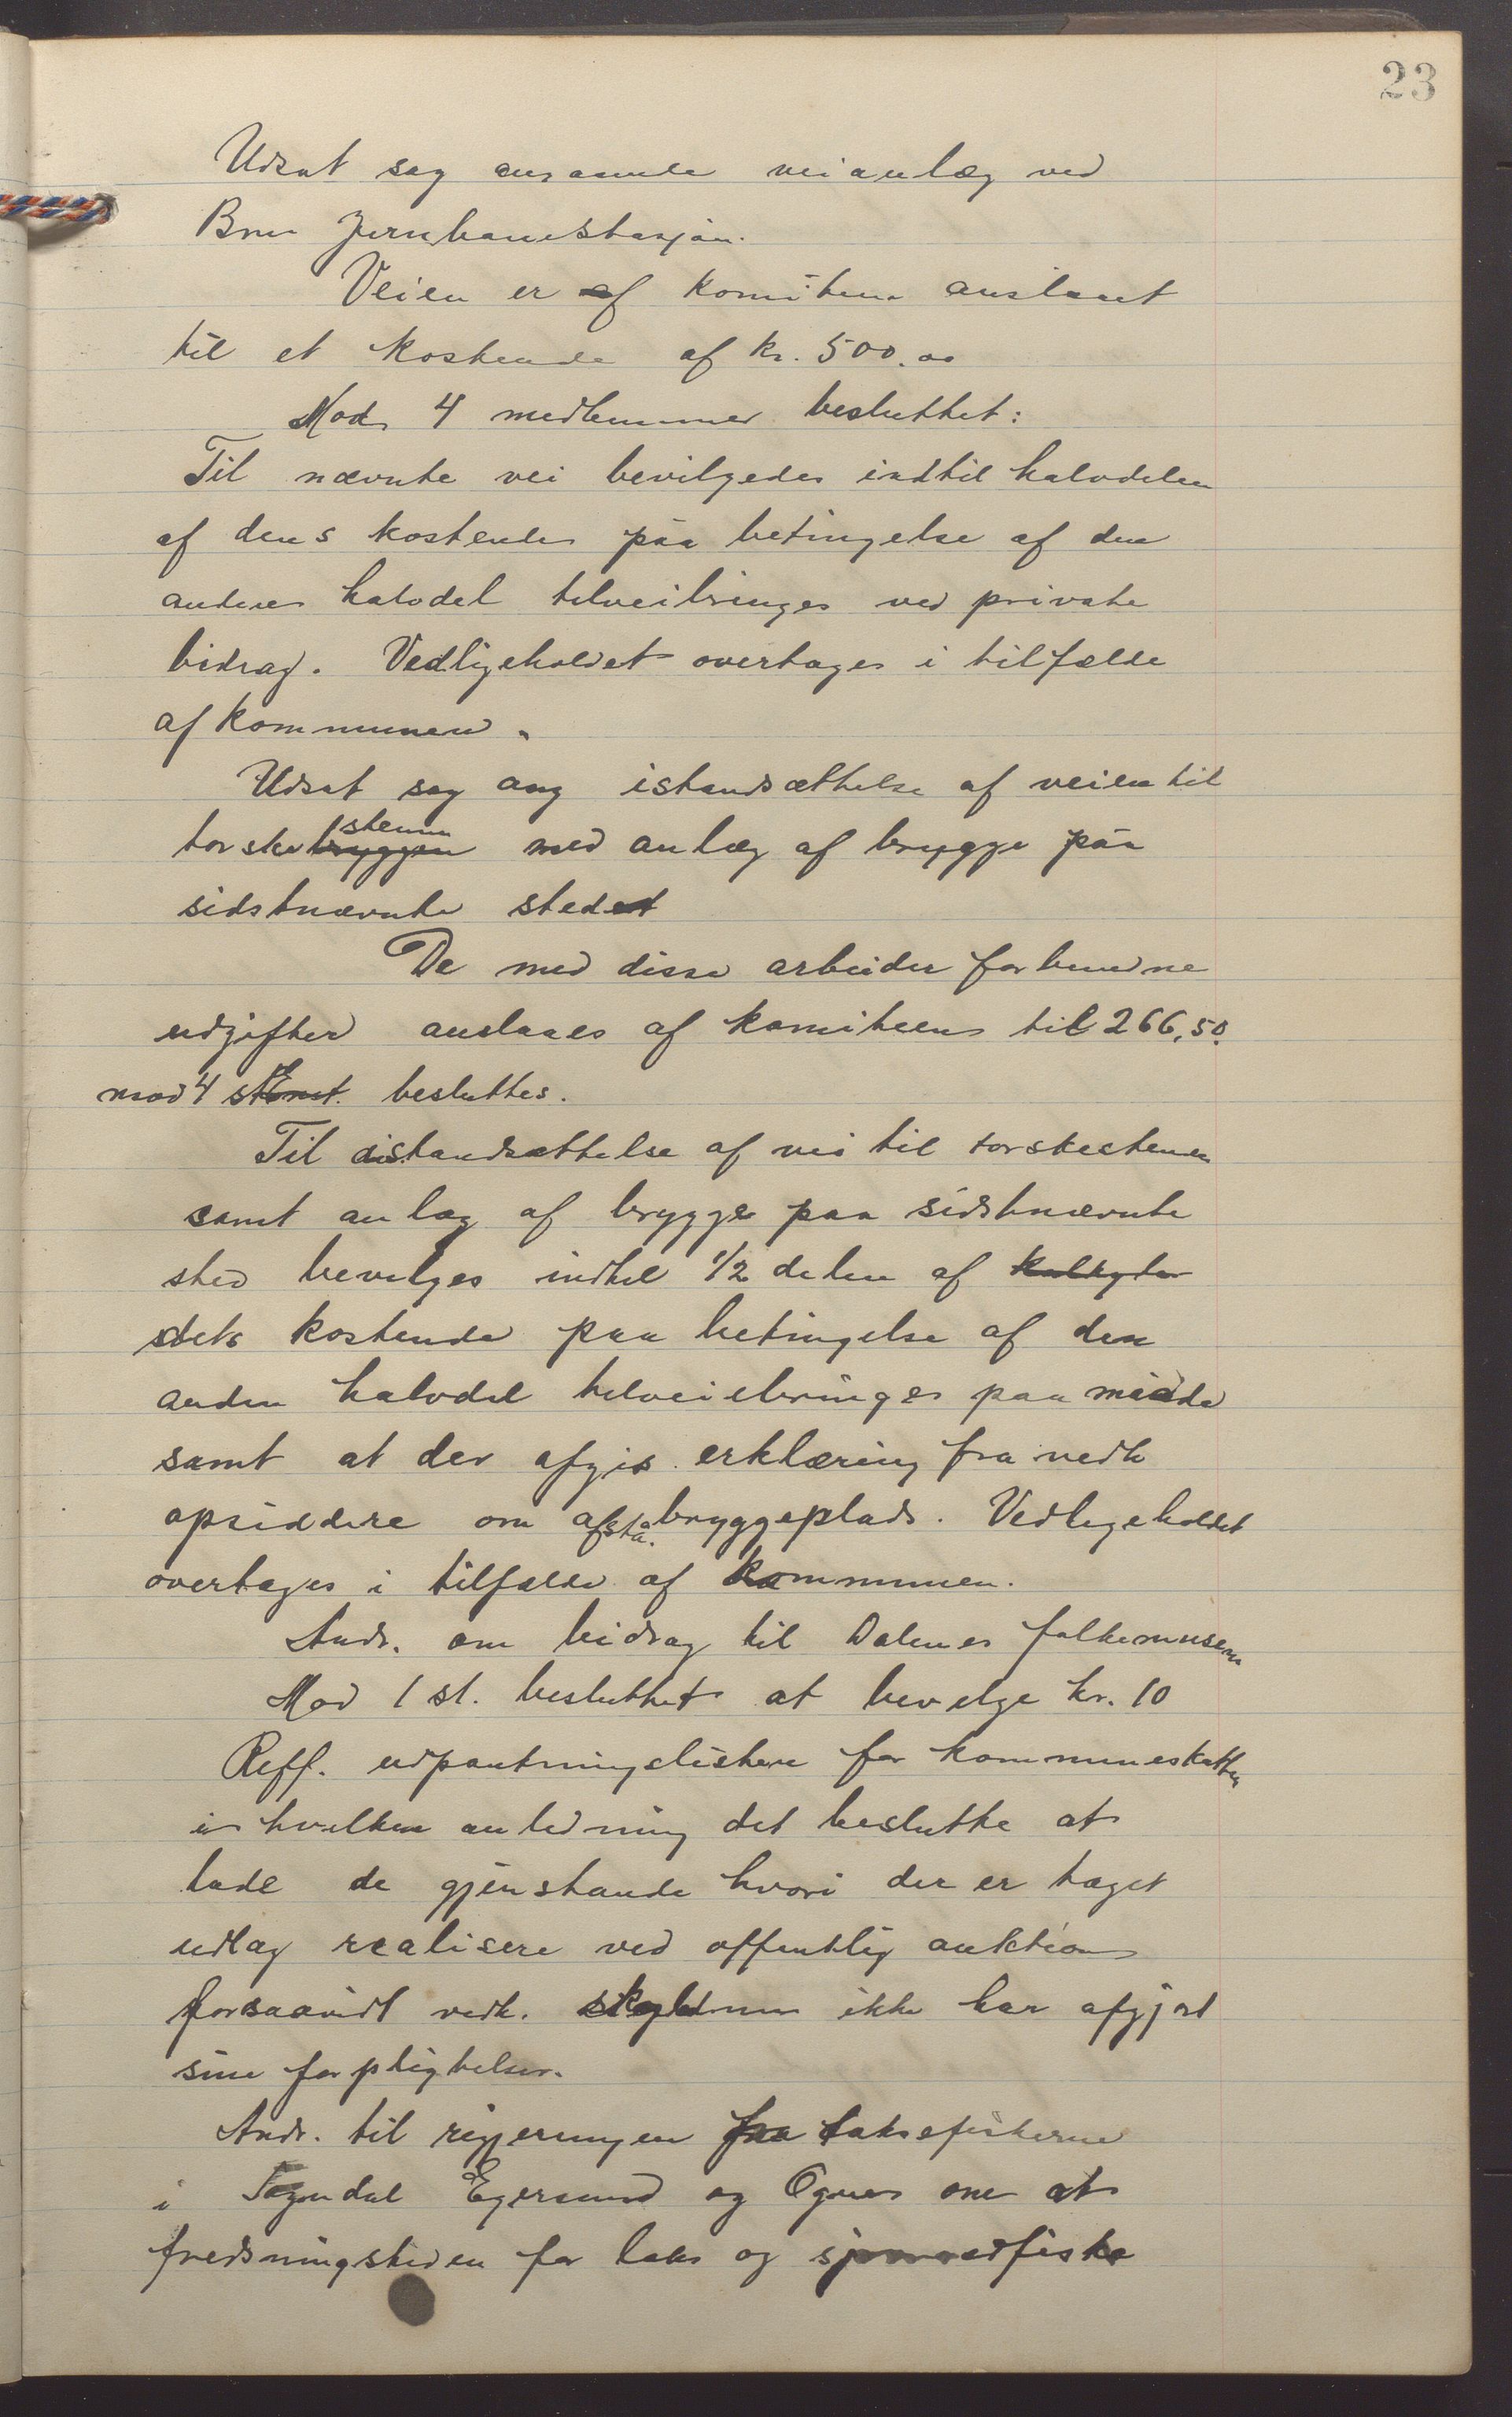 23
Udsat sag ang aaende veianlæg ved
Brue Jernbanestasjon.
Veien er af komiteen anslaaet
til et kostende af kr. 500.00
Mod 4 medlemmer besluttet:
Til nævnte vei bevilgedes indtil halvdelen
af dens kostende paa betingelse af den
anden halvdel tilveibringes ved private
bidrag. Vedligeholdet overtages i tilfælde
af kommunen.
Udsat sag ang istandsættelse af veien til
torskestemn med anlæg af brygge paa
sidstnævnte sted
De med disse arbeider forbundne
udgifter anslaaes af komiteen til 266,50.
mod 4 st. besluttes.
Til istandsættelse af vei til torskestemn
samt anlæg af brygge paa sidstnævnte
sted bevilges indtil 1/2 delen af
dets kostende paa betingelse af den
anden halvdel tilveiebringes paa
samt at der afgis erklæring fra vedk
opsiddere om afstå. bryggeplads. Vedligeholdet
overtages i tilfælde af kommunen.
Andr. om bidrag til Dalernes folkemuseum
Mod 1 st. besluttet at bevilge kr. 10
Reff. udpantningslistene for kommuneskatten
i hvilken anledning det beslutte at
lade de gjenstande hvori der er taget
udlæg realisere ved offentlig auktion
forsaavidt vedk. skyldner ikke har afgjort
sine forpligtelser.
Andr. til regjeringen fra laksefiskerne
i Sogndal Egersund og Ogne om at
fredningstiden for laks og sjøørredfiske